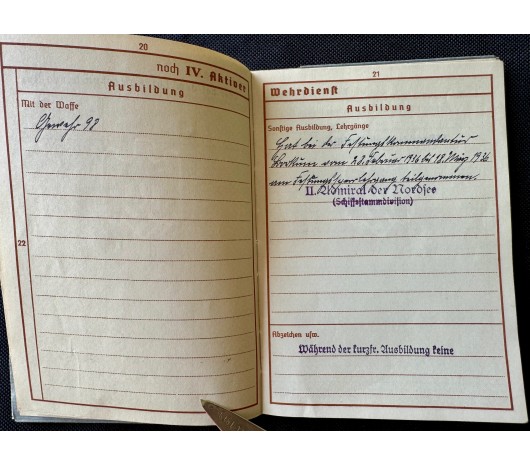 20
noch IV. Aktiver
Ausbildung
Mit der Waffe
Gewehr 98
22
21
Wehrdienst
Ausbildung
Sonstige Ausbildung, Lehrgänge
Hat bei der Festungskommandantur
Borkum vom 23. Februar 1936 bis 18. März 1936
am teilgenommen.
II. Admiral der Nordsee
(Schiffsstammdivision)
Abzeichen usw.
Während der kurzfr. Ausbildung keine